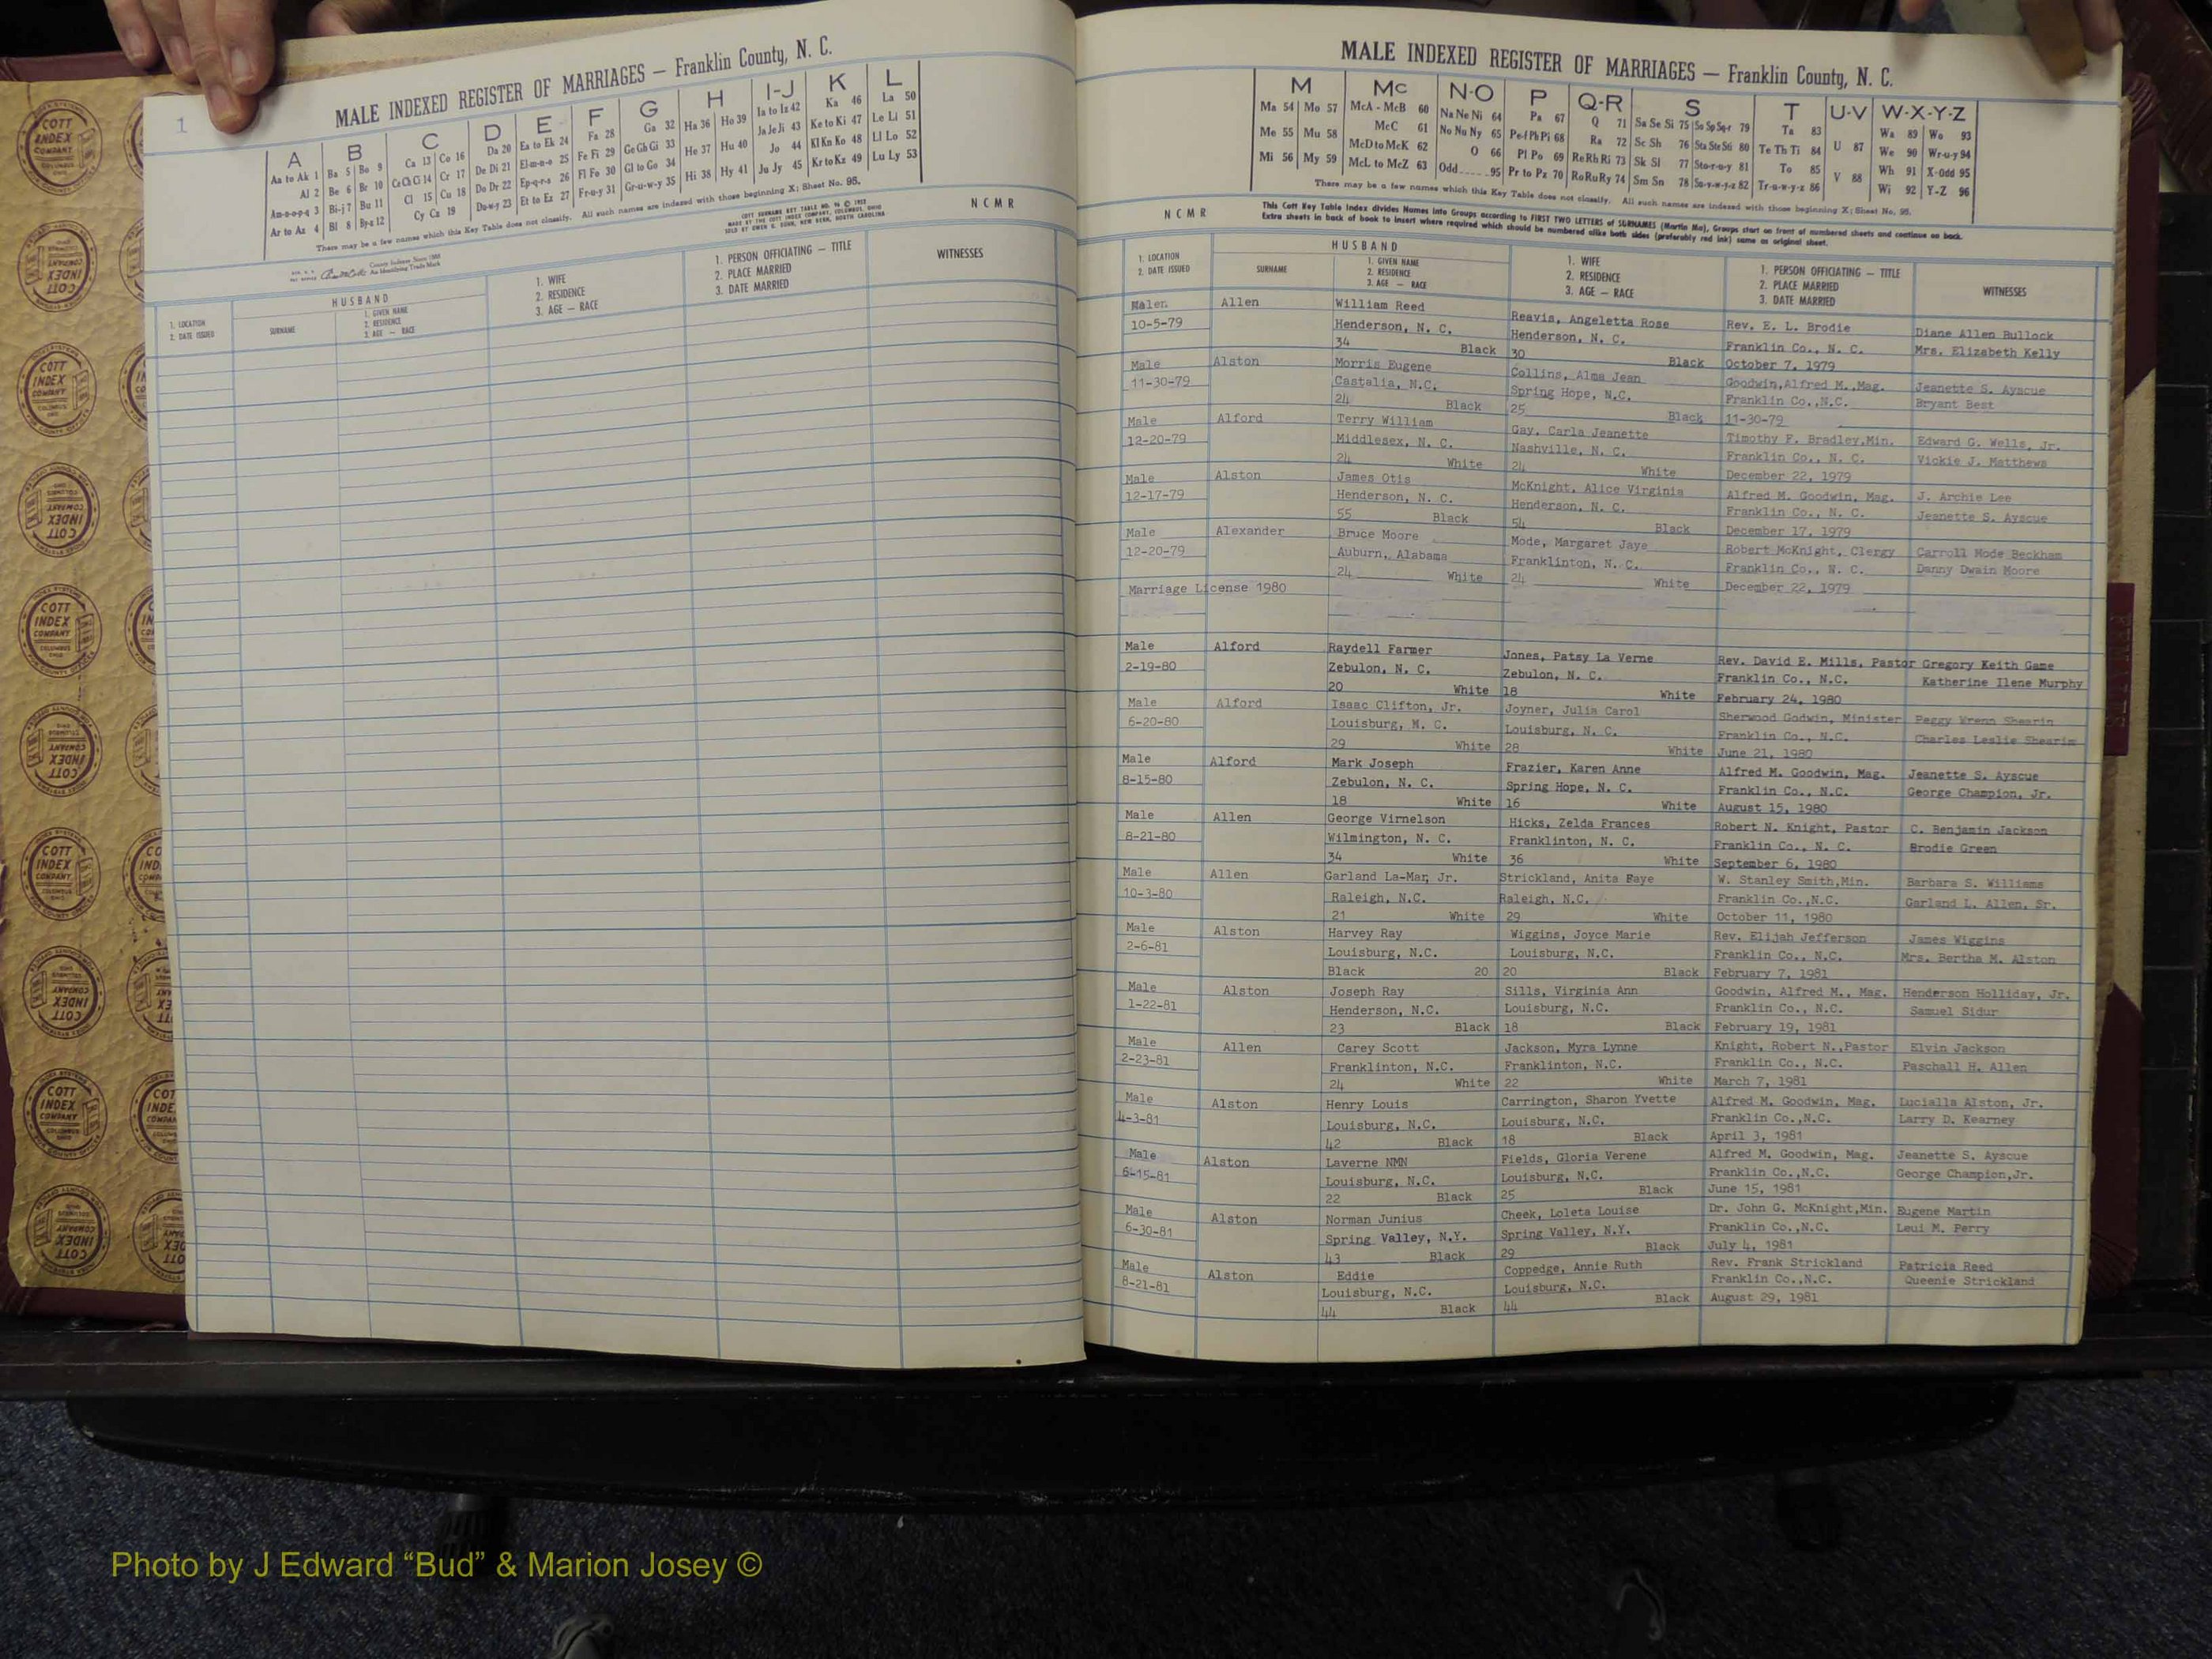 1
MALE INDEXED REGISTER OF MARRIAGES — Franklin County, N. C.
A B C D E F G H I-J K L
Aa to Ak 1 Ba 5 Bo 9 Ca 13 Co 16 Da 20 Ea to Ek 24 Fa 28 Ga 32 Ha 36 Ho 39 Ia to Iz 42 Ka 46 La 50
Al 2 Be 6 Br 10 Ce Ch Ci 14 Cr 17 De Di 21 El-m-n-o 25 Fe Fi 29 Ge Gh Gi 33 He 37 Hu 40 Ja Je Ji 43 Ke to Ki 47 Le Li 51
Am-n-o-p-q 3 Bi-j 7 Bu 11 Cl 15 Cu 18 Do Dr 22 Ep-q-r-s 26 Fl Fo 30 Gl to Go 34 Hi 38 Hy 41 Jo 44 Kl Kn Ko 48 Ll Lo 52
Ar to Az 4 Bl 8 By-z 12 Cy Cz 19 Du-w-y 23 Et to Ez 27 Fr-u-y 31 Gr-u-w-y 35 Ju Jy 45 Kr to Kz 49 Lu Ly 53
There may be a few names which this Key Table does not classify. All such names are indexed with those beginning X; Sheet No. 95.
County Indexes Since 1888
An Identifying Trade Mark
COTT SURNAME KEY TABLE NO.
MADE BY THE COTT INDEX COMPANY, COLUMBUS, OHIO
SOLD BY OWEN G. DUNN, NEW BERN, NORTH CAROLINA
N C M R
1. LOCATION
2. DATE ISSUED
HUSBAND
SURNAME
1. GIVEN NAME
2. RESIDENCE
3. AGE — RACE
1. WIFE
2. RESIDENCE
3. AGE — RACE
1. PERSON OFFICIATING — TITLE
2. PLACE MARRIED
3. DATE MARRIED
WITNESSES
COTT INDEX COMPANY
MALE INDEXED REGISTER OF MARRIAGES — Franklin County, N. C.
M Mc N-O P Q-R S T U-V W-X-Y-Z
Ma 54 Mo 57 McA - McB 60 Na Ne Ni 64 Pa 67 Q 71 Sa Se Si 75 So Sp Sq-r 79 Ta 83 U 87 Wa 89 Wo 93
Me 55 Mu 58 McC 61 No Nu Ny 65 Pe-f Ph Pi 68 Ra 72 Sc Sh 76 Sta Ste Sti 80 Te Th Ti 84 V 88 We 90 Wr-u-y 94
Mi 56 My 59 McD to McK 62 O 66 Pl Po 69 Re Rh Ri 73 Sk Sl 77 Sto-r-u-y 81 To 85 Wh 91 X-Odd 95
McL to McZ 63 Odd 95 Pr to Pz 70 Ro Ru Ry 74 Sm Sn 78 Su-v-w-y-z 82 Tr-u-w-y-z 86 Wi 92 Y-Z 96
There may be a few names which this Key Table does not classify. All such names are indexed with those beginning X; Sheet No. 95.
N C M R
This Cott Key Table Index divides Names into Groups according to FIRST TWO LETTERS of SURNAMES (Martin Ma), Groups start on front of numbered sheets and continue on back.
Extra sheets in back of book to insert where required which should be numbered alike both sides (preferably red ink) same as original sheet.
1. LOCATION
2. DATE ISSUED
HUSBAND
SURNAME
1. GIVEN NAME
2. RESIDENCE
3. AGE — RACE
1. WIFE
2. RESIDENCE
3. AGE — RACE
1. PERSON OFFICIATING — TITLE
2. PLACE MARRIED
3. DATE MARRIED
WITNESSES
Male Allen William Reed Reavis, Angeletta Rose Rev. E. L. Brodie Diane Allen Bullock
10-5-79 Henderson, N. C. Henderson, N. C. Franklin Co., N. C. Mrs. Elizabeth Kelly
34 Black 30 Black October 7, 1979
Male Alston Morris Eugene Collins, Alma Jean Goodwin,Alfred M.,Mag. Jeanette S. Ayscue
11-30-79 Castalia, N.C. Spring Hope, N.C. Franklin Co.,N.C. Bryant Best
24 Black 25 Black 11-30-79
Male Alford Terry William Gay, Carla Jeanette Timothy F. Bradley,Min. Edward G. Wells, Jr.
12-20-79 Middlesex, N. C. Nashville, N. C. Franklin Co., N. C. Vickie J. Matthews
24 White 24 White December 22, 1979
Male Alston James Otis McKnight, Alice Virginia Alfred M. Goodwin, Mag. J. Archie Lee
12-17-79 Henderson, N. C. Henderson, N. C. Franklin Co., N. C. Jeanette S. Ayscue
55 Black 54 Black December 17, 1979
Male Alexander Bruce Moore Mode, Margaret Jaye Robert McKnight, Clergy Carroll Mode Beckham
12-20-79 Auburn, Alabama Franklinton, N. C. Franklin Co., N. C. Danny Dwain Moore
24 White 24 White December 22, 1979
Marriage License 1980
Male Alford Raydell Farmer Jones, Patsy La Verne Rev. David E. Mills, Pastor Gregory Keith Game
2-19-80 Zebulon, N. C. Zebulon, N. C. Franklin Co., N.C. Katherine Ilene Murphy
20 White 18 White February 24, 1980
Male Alford Isaac Clifton, Jr. Joyner, Julia Carol Sherwood Godwin, Minister Peggy Wrenn Shearin
6-20-80 Louisburg, N. C. Louisburg, N. C. Franklin Co., N.C. Charles Leslie Shearin
29 White 28 White June 21, 1980
Male Alford Mark Joseph Frazier, Karen Anne Alfred M. Goodwin, Mag. Jeanette S. Ayscue
8-15-80 Zebulon, N. C. Spring Hope, N. C. Franklin Co., N.C. George Champion, Jr.
18 White 16 White August 15, 1980
Male Allen George Virnelson Hicks, Zelda Frances Robert N. Knight, Pastor C. Benjamin Jackson
8-21-80 Wilmington, N. C. Franklinton, N. C. Franklin Co., N. C. Brodie Green
34 White 36 White September 6, 1980
Male Allen Garland La-Mar, Jr. Strickland, Anita Faye W. Stanley Smith,Min. Barbara S. Williams
10-3-80 Raleigh, N.C. Raleigh, N.C. Franklin Co.,N.C. Garland L. Allen, Sr.
21 White 29 White October 11, 1980
Male Alston Harvey Ray Wiggins, Joyce Marie Rev. Elijah Jefferson James Wiggins
2-6-81 Louisburg, N.C. Louisburg, N.C. Franklin Co., N.C. Mrs. Bertha M. Alston
Black 20 20 Black February 7, 1981
Male Alston Joseph Ray Sills, Virginia Ann Goodwin, Alfred M., Mag. Henderson Holliday, Jr.
1-22-81 Henderson, N.C. Louisburg, N.C. Franklin Co., N.C. Samuel Sidur
23 Black 18 Black February 19, 1981
Male Allen Carey Scott Jackson, Myra Lynne Knight, Robert N.,Pastor Elvin Jackson
2-23-81 Franklinton, N.C. Franklinton, N.C. Franklin Co., N.C. Paschall H. Allen
24 White 22 White March 7, 1981
Male Alston Henry Louis Carrington, Sharon Yvette Alfred M. Goodwin, Mag. Lucialla Alston, Jr.
4-3-81 Louisburg, N.C. Louisburg, N.C. Franklin Co.,N.C. Larry D. Kearney
42 Black 18 Black April 3, 1981
Male Alston Laverne NMN Fields, Gloria Verene Alfred M. Goodwin, Mag. Jeanette S. Ayscue
6-15-81 Louisburg, N.C. Louisburg, N.C. Franklin Co.,N.C. George Champion,Jr.
22 Black 25 Black June 15, 1981
Male Alston Norman Junius Cheek, Loleta Louise Dr. John G. McKnight,Min. Eugene Martin
6-30-81 Spring Valley, N.Y. Spring Valley, N.Y. Franklin Co.,N.C. Leui M. Perry
43 Black 29 Black July 4, 1981
Male Alston Eddie Coppedge, Annie Ruth Rev. Frank Strickland Patricia Reed
8-21-81 Louisburg, N.C. Louisburg, N.C. Franklin Co.,N.C. Queenie Strickland
44 Black 44 Black August 29, 1981
Photo by J Edward “Bud” & Marion Josey ©